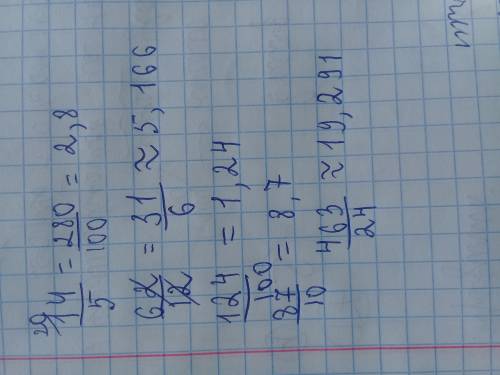 20/ 14/5 = 280/100 = 2,8
62/12 = 31/6 ≈ 5,166
124/100 = 1,24
87/10 = 8,7
463/24 ≈ 19,291